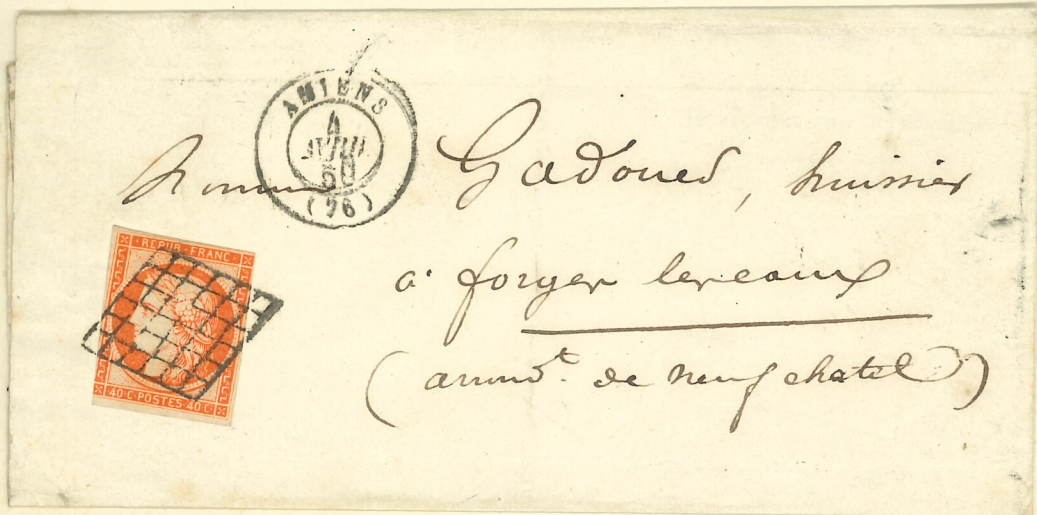 AMIENS
4
AVRIL
50
(76)
Monsieur Gadoued, huissier
à forges les eaux
(arrond.t de neufchatel)
REPUB · FRANC ·
40 C · POSTES 40 C ·